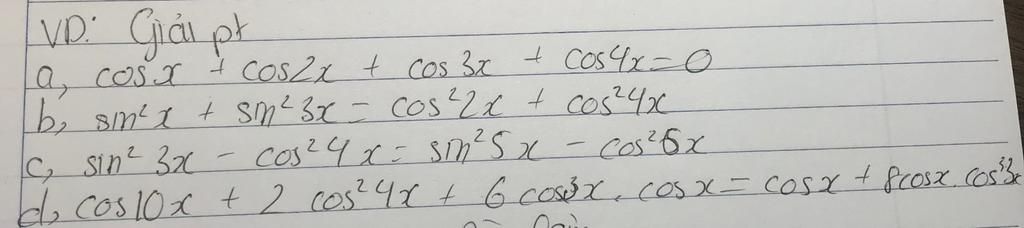 VD: Giải pt
a, cosx + cos2x + cos3x + cos4x = 0
b, sin²x + sin²3x = cos²2x + cos²4x
c, sin²3x - cos²4x = sin²5x - cos²6x
d, cos10x + 2cos²4x + 6cos3x.cosx = cosx + 8cosx.cos³3x